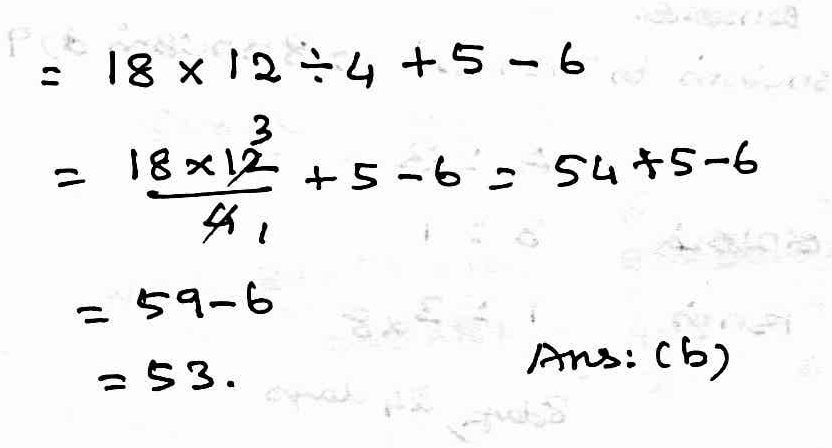 = 18 × 12 ÷ 4 + 5 - 6
= 18 × 12 3 / 4 1 + 5 - 6 = 54 + 5 - 6
= 59 - 6
= 53.
Ans: (b)